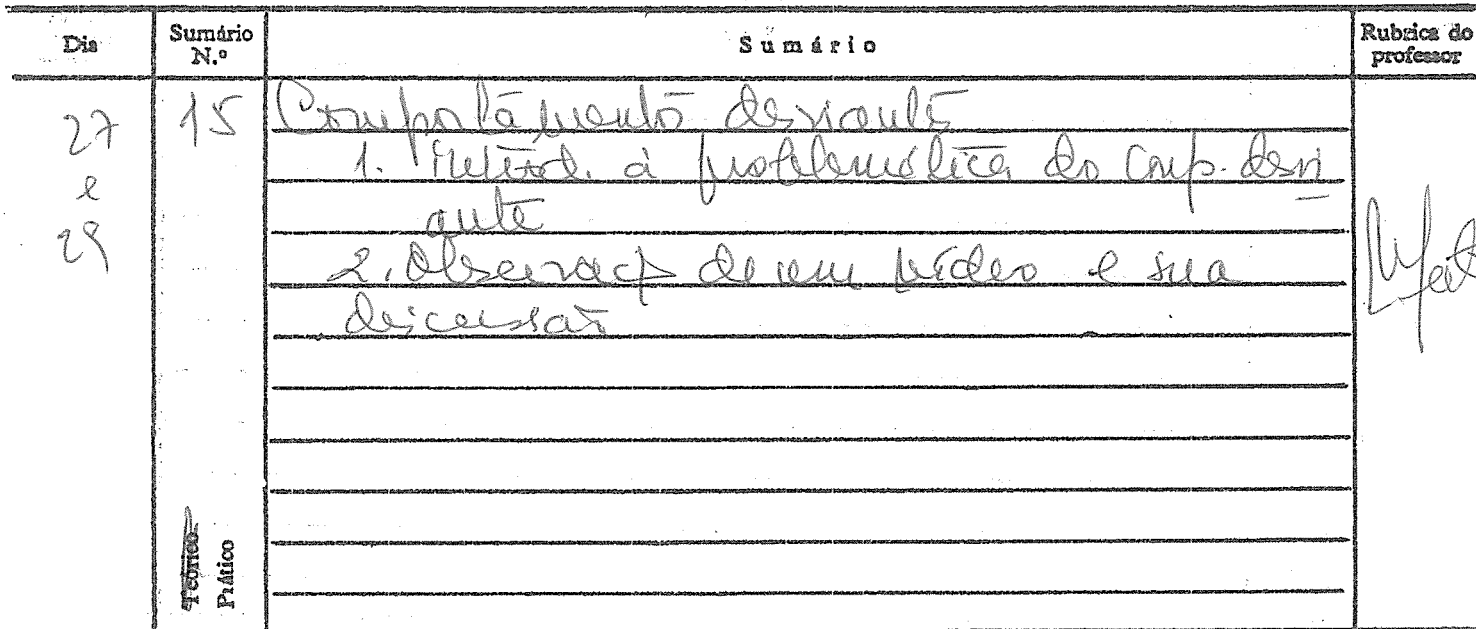 Dia
Sumário N.º
Sumário
Rubrica do professor
27 e 29
15
Comportamento desviante
1. Introd. à problemática do Comp. desvi
ante
2. Observaç de um vídeo e sua
discussão
Teórico
Prático